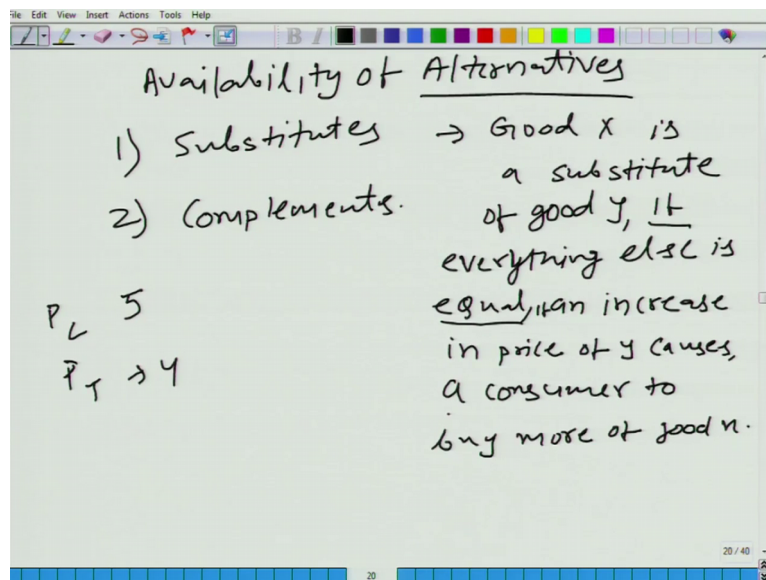 File Edit View Insert Actions Tools Help
B I
Availability of Alternatives
1) Substitutes
2) Complements.
→ Good X is
a substitute
of good Y, If
everything else is
equal, if an increase
in price of y causes,
a consumer to
buy more of good x.
P_C 5
P_T → 4
20 / 40
20